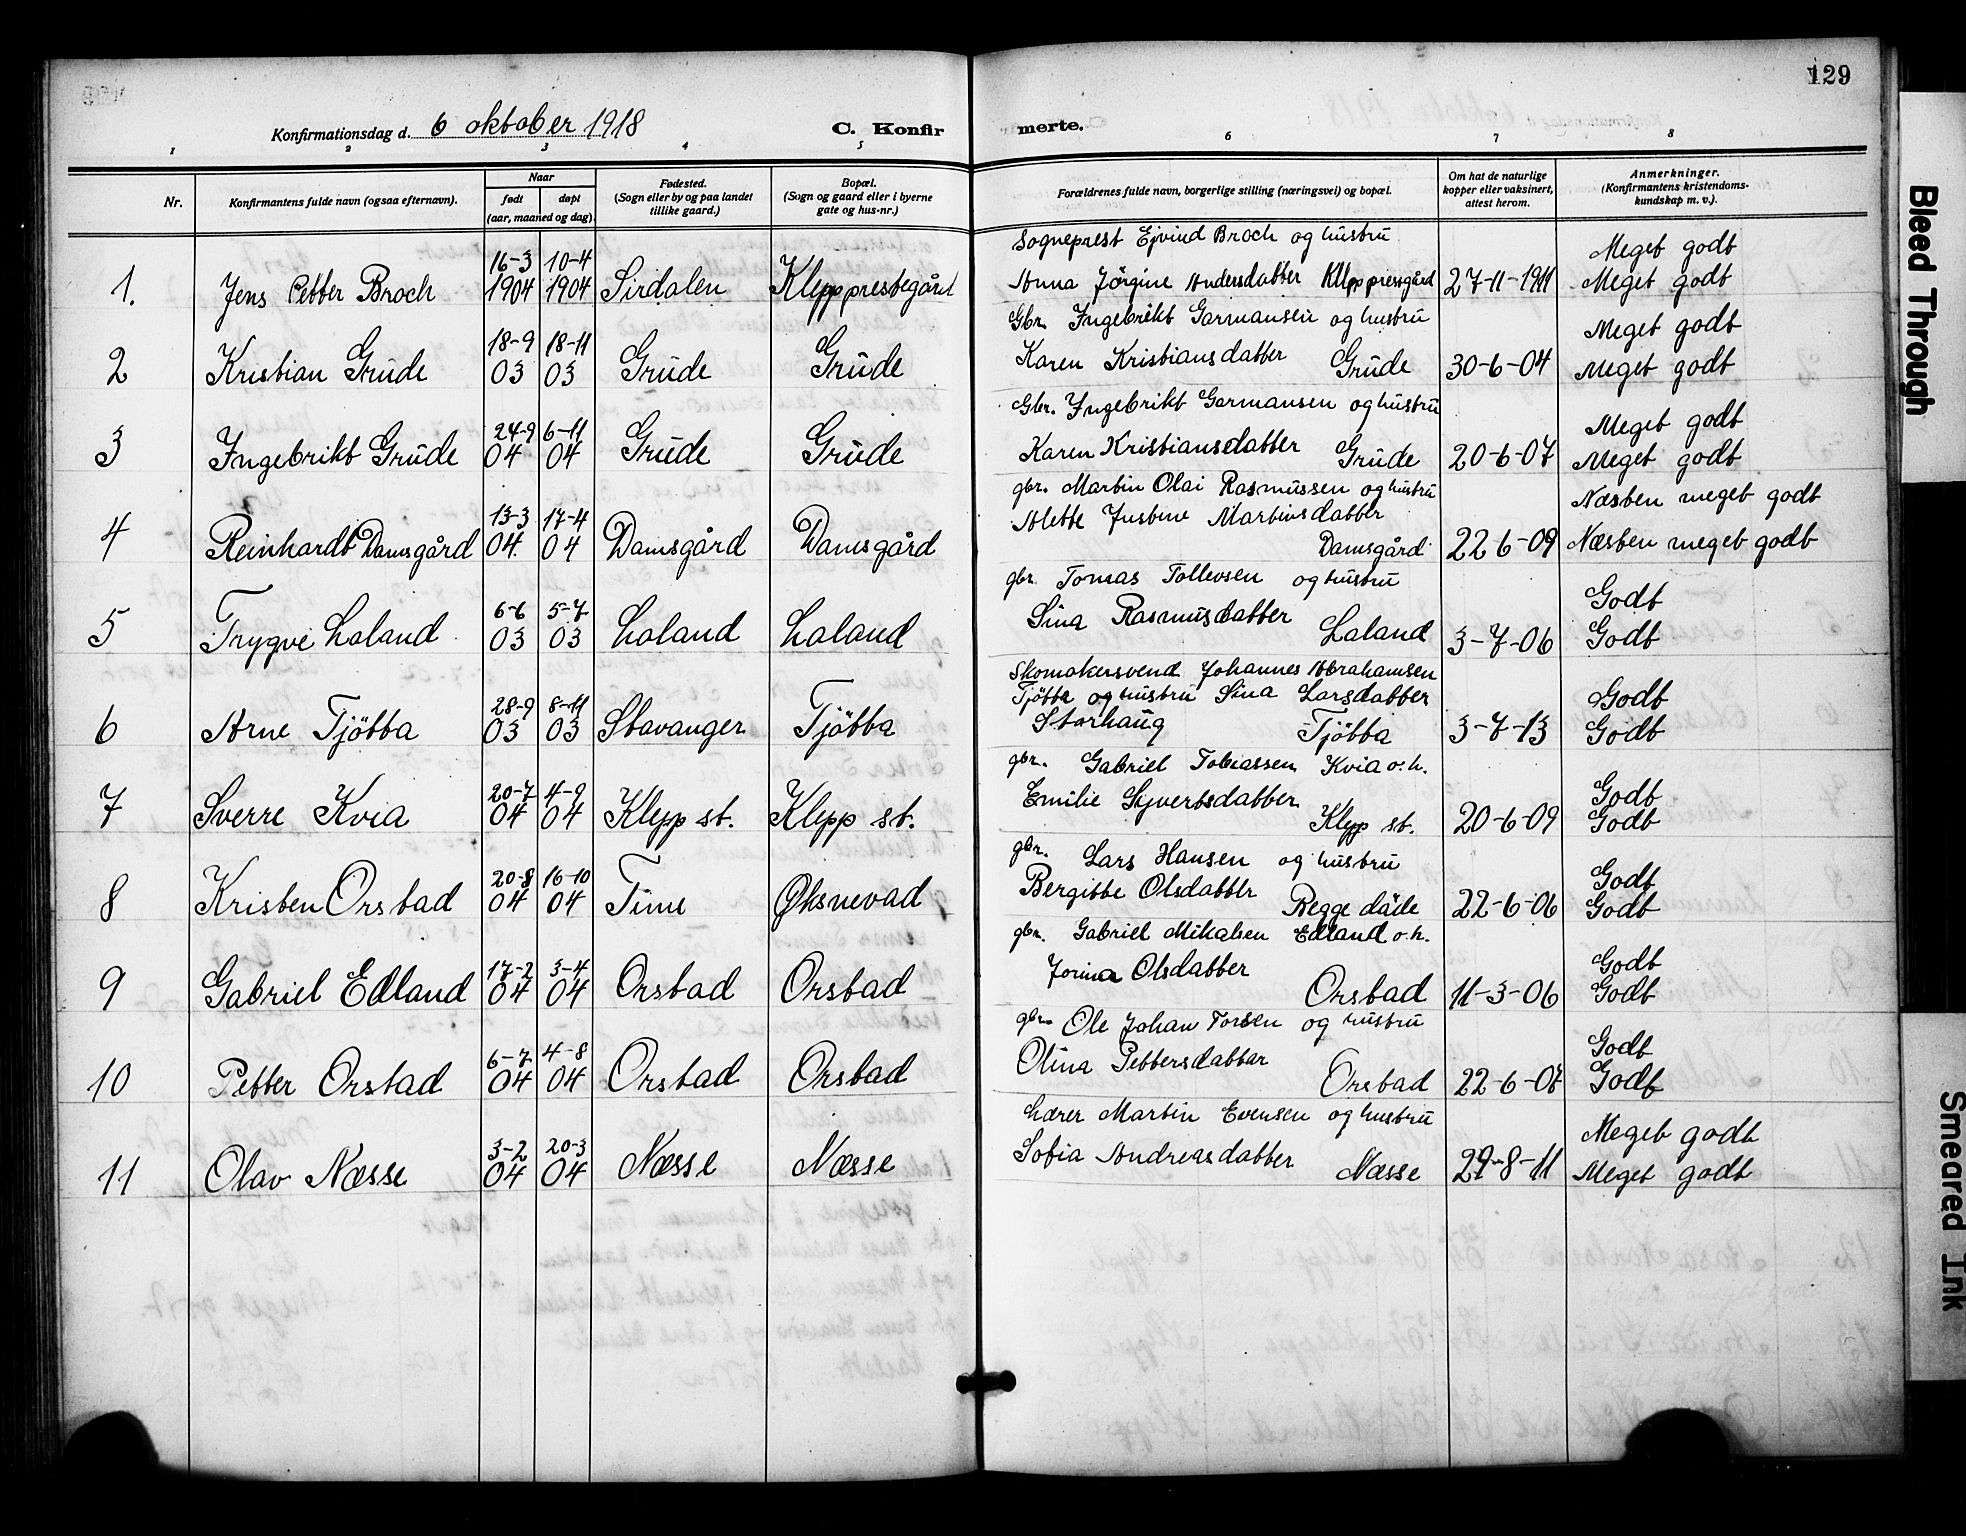 129
Konfirmationsdag d. 6 oktober 1918 C. Konfirmerte.
1 2 3 4 5 6 7 8
Nr. Konfirmantens fulde navn (ogsaa efternavn). Naar født døpt (aar, maaned og dag). Fødested. (Sogn eller by og paa landet tillike gaard.) Bopæl. (Sogn og gaard eller i byerne gate og hus-nr.) Forældrenes fulde navn, borgerlige stilling (næringsvei) og bopæl. Om hat de naturlige kopper eller vaksinert, attest herom. Anmerkninger. (Konfirmantens kristendomskundskap m. v.).
16-3 10-4 Sogneprest Ejvind Broch og hustru Meget godt
1. Jens Petter Broch 1904 1904 Sirdalen Klepp prestegård Anna Jörgine Andersdatter Klepp prestgård 27-11-1911 Meget godt
18-9 18-11 Gbr. Ingebrikt Garmansen og hustru Meget godt
2 Kristian Grude 03 03 Grude Grude Karen Kristiansdatter Grude 30-6-04 Meget godt
24-9 6-11 Gbr. Ingebrikt Garmansen og hustru Meget godt
3 Ingebrikt Grude 04 04 Grude Grude Karen Kristiansdatter Grude 20-6-07 Meget godt
13-3 17-4 gbr. Martin Olai Rasmussen og hustru Næsten meget godt
4 Reinhardt Damsgård 04 04 Damsgård Damsgård Alette Justine Martinsdatter
Damsgård 22 6-09 Næsten meget godt
6-6 5-7 gbr. Tomas Tollevsen og hustru Godt
5 Trygve Laland 03 03 Laland Laland Sina Rasmusdatter Laland 3-7-06 Godt
28-9 8-11 Skomakersvend Johannes Abrahamsen
Tjötta og hustru Sina Larsdatter Godt
6 Arne Tjötta 03 03 Stavanger Tjötta Storhaug Tjötta 3-7-13 Godt
20-7 4-9 gbr. Gabriel Tobiassen Kvia o. h. Godt
7 Sverre Kvia 04 04 Klepp st. Klepp st. Emilie Syvertsdatter Klepp st. 20-6-09 Godt
20-8 16-10 gbr. Lars Hansen og hustru Godt
8 Kristen Orstad 04 04 Time Øksnevad Bergitte Olsdatter Begge döde 22-6-06 Godt
17-2 3-4 gbr. Gabriel Mikalsen Edland o. h. Godt
9 Gabriel Edland 04 04 Orstad Orstad Jorina Olsdatter Orstad 11-3-06 Godt
6-7 4-8 gbr. Ole Johan Torsen og hustru Godt
10 Petter Orstad 04 04 Orstad Orstad Olina Pettersdatter Orstad 22-6-07 Godt
3-2 20-3 Lærer Martin Evensen og hustru Meget godt
11 Olav Næsse 04 04 Næsse Næsse Sofia Andreasdatter Næsse 29-8-11 Meget godt
Bleed Through
Smeared Ink